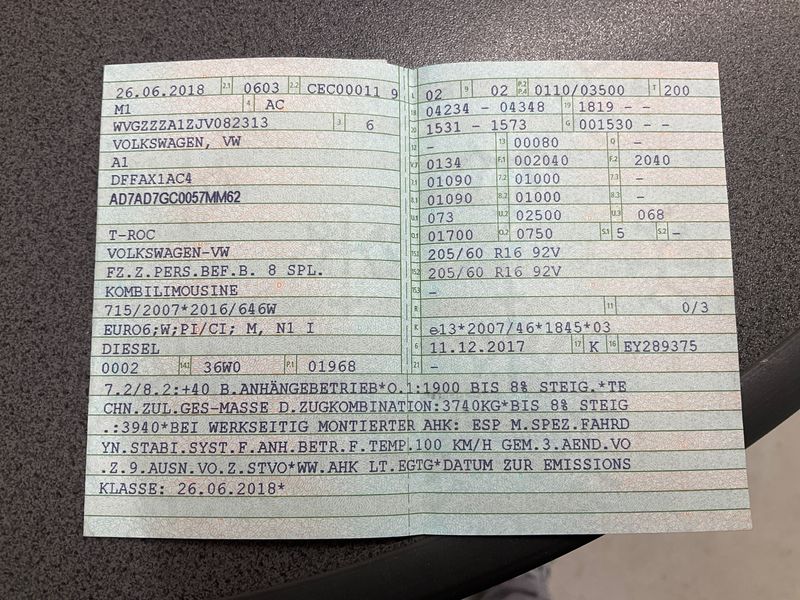 26.06.2018 2.1 0603 2.2 CEC00011 9
M1 4 AC
WVGZZZA1ZJV082313 3 6
VOLKSWAGEN, VW
A1
DFFAX1AC4
AD7AD7GC0057MM62
T-ROC
VOLKSWAGEN-VW
FZ.Z.PERS.BEF.B. 8 SPL.
KOMBILIMOUSINE
715/2007*2016/646W
EURO6;W;PI/CI; M, N1 I
DIESEL
0002 14.1 36W0 P.1 01968
L 02 9 02 P.2 P.4 0110/03500 T 200
18 04234 - 04348 19 1819 - -
20 1531 - 1573 G 001530 - -
12 - 13 00080 Q -
V.7 0134 F.1 002040 F.2 2040
7.1 01090 7.2 01000 7.3 -
8.1 01090 8.2 01000 8.3 -
U.1 073 U.2 02500 U.3 068
O.1 01700 O.2 0750 S.1 5 S.2 -
15.1 205/60 R16 92V
15.2 205/60 R16 92V
15.3 -
R 11 0/3
K e13*2007/46*1845*03
6 11.12.2017 17 K 16 EY289375
21 -
7.2/8.2:+40 B.ANHÄNGEBETRIEB*O.1:1900 BIS 8% STEIG.*TE
CHN.ZUL.GES-MASSE D.ZUGKOMBINATION:3740KG*BIS 8% STEIG
.:3940*BEI WERKSEITIG MONTIERTER AHK: ESP M.SPEZ.FAHRD
YN.STABI.SYST.F.ANH.BETR.F.TEMP.100 KM/H GEM.3.AEND.VO
.Z.9.AUSN.VO.Z.STVO*WW.AHK LT.EGTG*DATUM ZUR EMISSIONS
KLASSE: 26.06.2018*